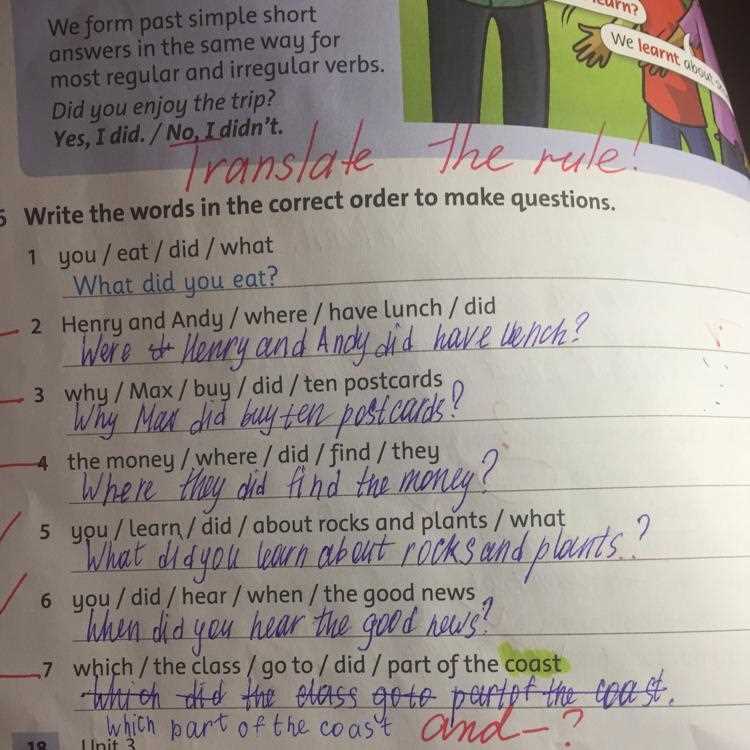 learn?
We learnt about
We form past simple short
answers in the same way for
most regular and irregular verbs.
Did you enjoy the trip?
Yes, I did. / No, I didn't.
Translate the rule!
5 Write the words in the correct order to make questions.
1 you / eat / did / what
What did you eat?
2 Henry and Andy / where / have lunch / did
Were Henry and Andy did have lench?
3 why / Max / buy / did / ten postcards
Why Max did buy ten postcards?
4 the money / where / did / find / they
Where they did find the money?
5 you / learn / did / about rocks and plants / what
What did you learn about rocks and plants?
6 you / did / hear / when / the good news
When did you hear the good news?
7 which / the class / go to / did / part of the coast
Which did the class go to part of the coast.
Which part of the coast and - ?
18 Unit 3